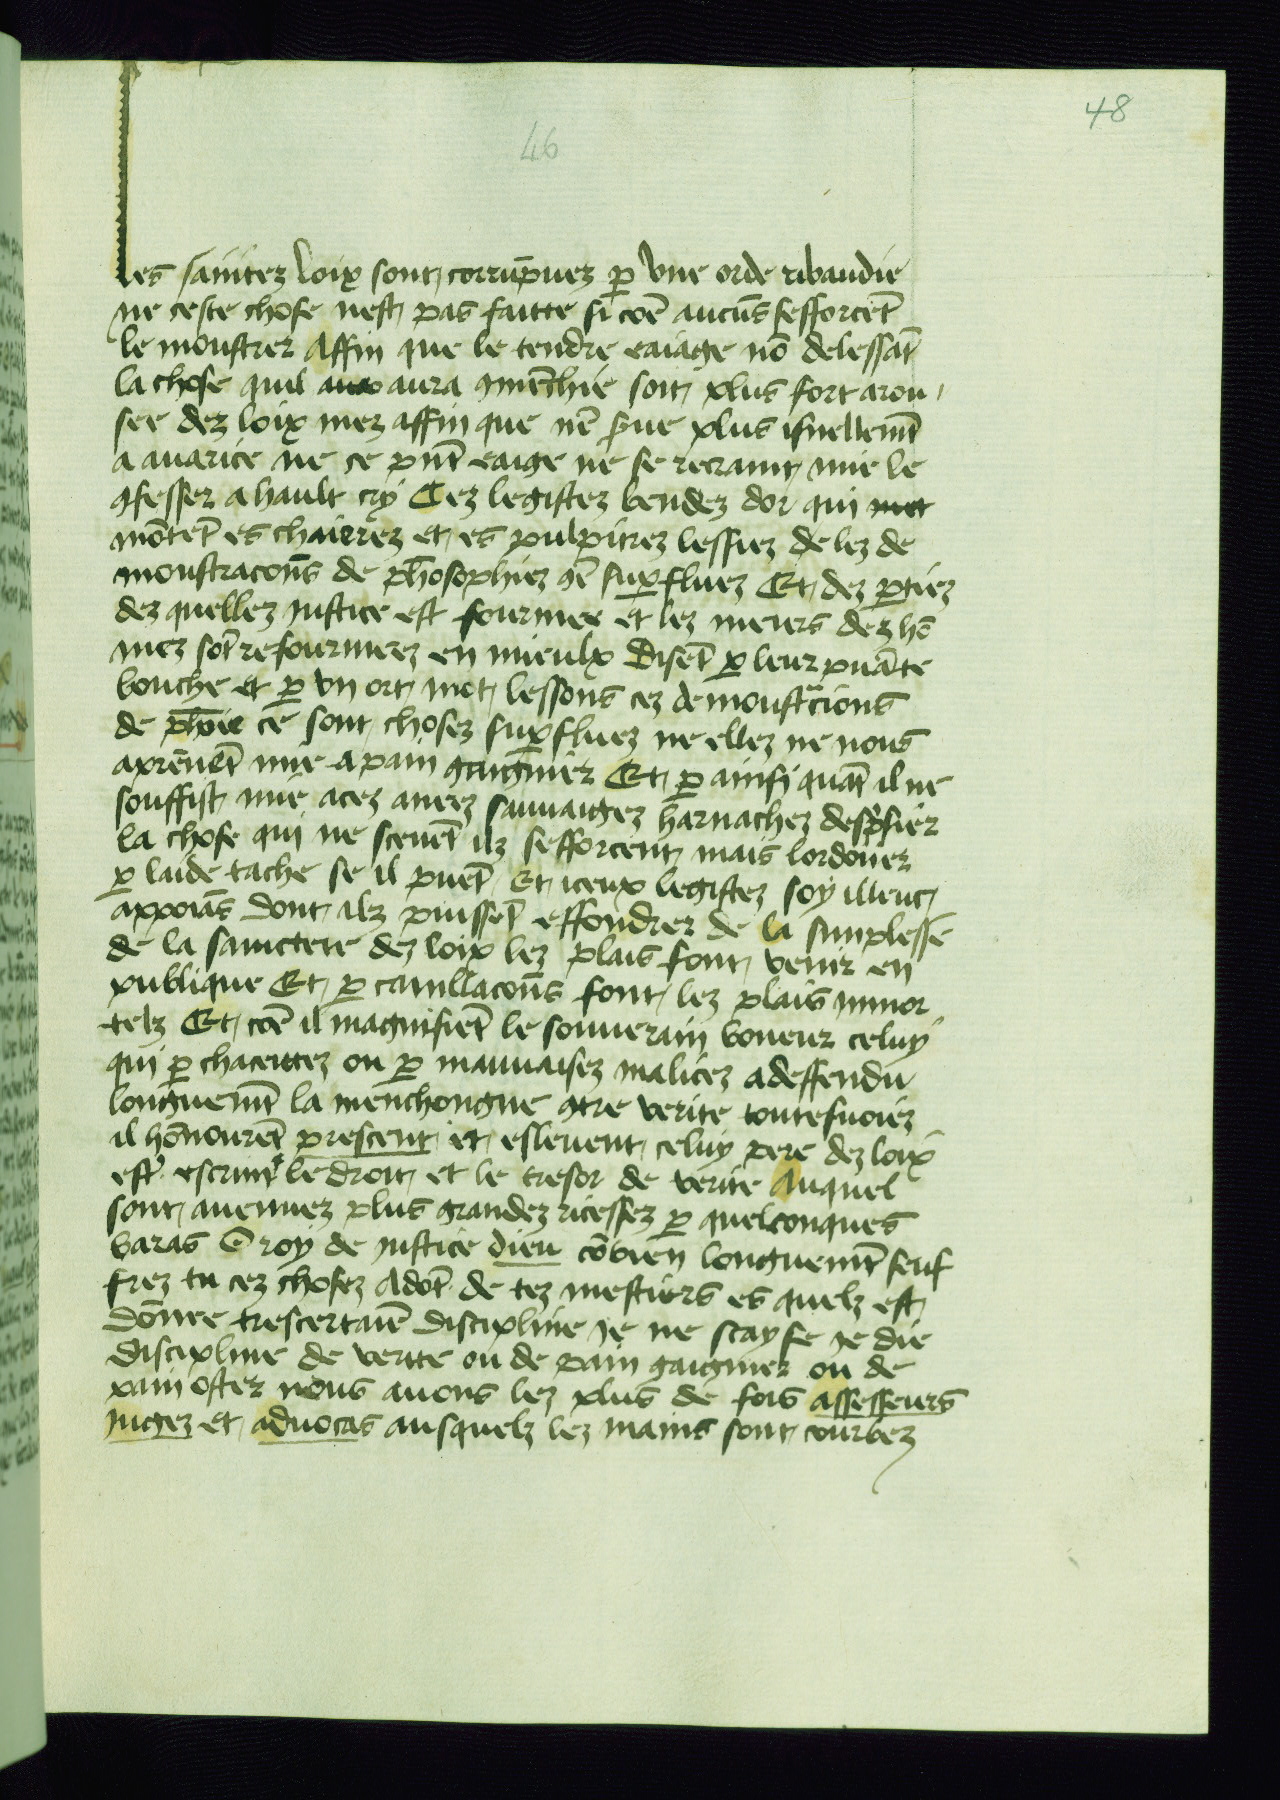 48
46
les saintez loix sont corrūpuez ꝑ vne orde ribaudie
ne ceste chose nest pas faitte si cōe aucūs sefforcēt
le moustrer Affin que le tendre eaiage nō delessāt
la chose quil aura ꝯmēchie soit plus fort arou
see dez loix mez affin que nē ꝑue plus isnellemt̄
a auarice ne ce pn̄t eaige ne se recraint mie le
ꝯfesser a hault cry Cez legistez bendez dor qui
mōtēt es chaierez et es pulpitrez lessiez de lez de
moustracoñs de ph̄osophiez ꝯē suꝑfluez Et dez ꝑtiez
dez quellez justice est fourmee et lez meurs dez hō
mez sōt refourmeez en mieulx Disēt ꝑ leur puāte
bouche et ꝑ vn ort mot lessons cez demoustracions
de ph̄ie ce sont chosez suꝑfluez ne ellez ne nous
aprēnēt mie a pain gaignier Et ꝑ ainsi quāt il ne
souffist mie a cez anez sauuaigez harnachez despr̄sier
la chose qui ne sceuēt ilz sefforcent mais lordoner
ꝑ laide tache se il puēt Et iceux legistez soy illeuc
appoiās dont ilz puissēt effondrer de la simplesse
de la sainctete dez loix lez plais font venir en
publique Et ꝑ cauillacoñs font lez plais inmor
telz Et cōe il magnifiēt le souuerain boneur celuy
qui ꝑ chacuez ou ꝑ mauuaisez malicez a deffendu
longuemt̄ la menchongne ꝯtre verite toutefuoiez
il hōnourēt prescent et eslieuent celuy pere dez loix
est escrint le droit et le tresor de verite Auquel
sont auenuez plus grandez ricessez ꝑ quelconques
baras O roy de justice dieu cōbien longuemt̄ seuf
frez tu cez chosez Adōt de tez mestiers es quelz est
dōnee trescertaīe discipline je ne scay se je die
discipline de verite ou de pain gaignier ou de
pain oster nous auons lez plus de fois assesseurs
jugez et aduocas ausquelz lez mains sont courbez